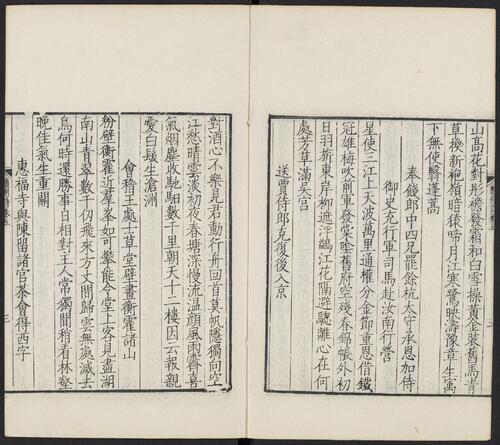 山高花對彤襜發霜和白雪操黃金裝舊馬青
草換新袍嶺暗猿啼月江寒鷺映濤豫章生寓
下無使翳蓬蒿
奉餞郎中四兄罷餘杭太守承恩加侍
御史充行軍司馬赴汝南行營
星使三江上天波萬里通權分金節重恩借鐵
冠雄梅吹前軍發棠陰舊府空殘春錦障外初
日羽旂東岸柳遮浮鷁江花隔避驄離心在何
處芳草滿吳宮
送賈侍郎克復後入京
對酒心不樂見君動行舟回首莫帆隱獨向空
江愁晴雲淡初夜春塘深慢流溫顏風雨霽喜
氣烟塵收馳馹數千里朝天十二樓因云報親
愛白髮生滄洲
會稽王處士草堂壁畫衡霍諸山
粉壁衡霍近羣峯如可攀能令堂上客見盡湖
南山青翠數千仞飛來方丈間歸雲無處滅去
鳥何時還勝事日相對主人常獨閒稍看林壑
晚佳氣生重關
惠福寺與陳留諸官茶會得西字
三